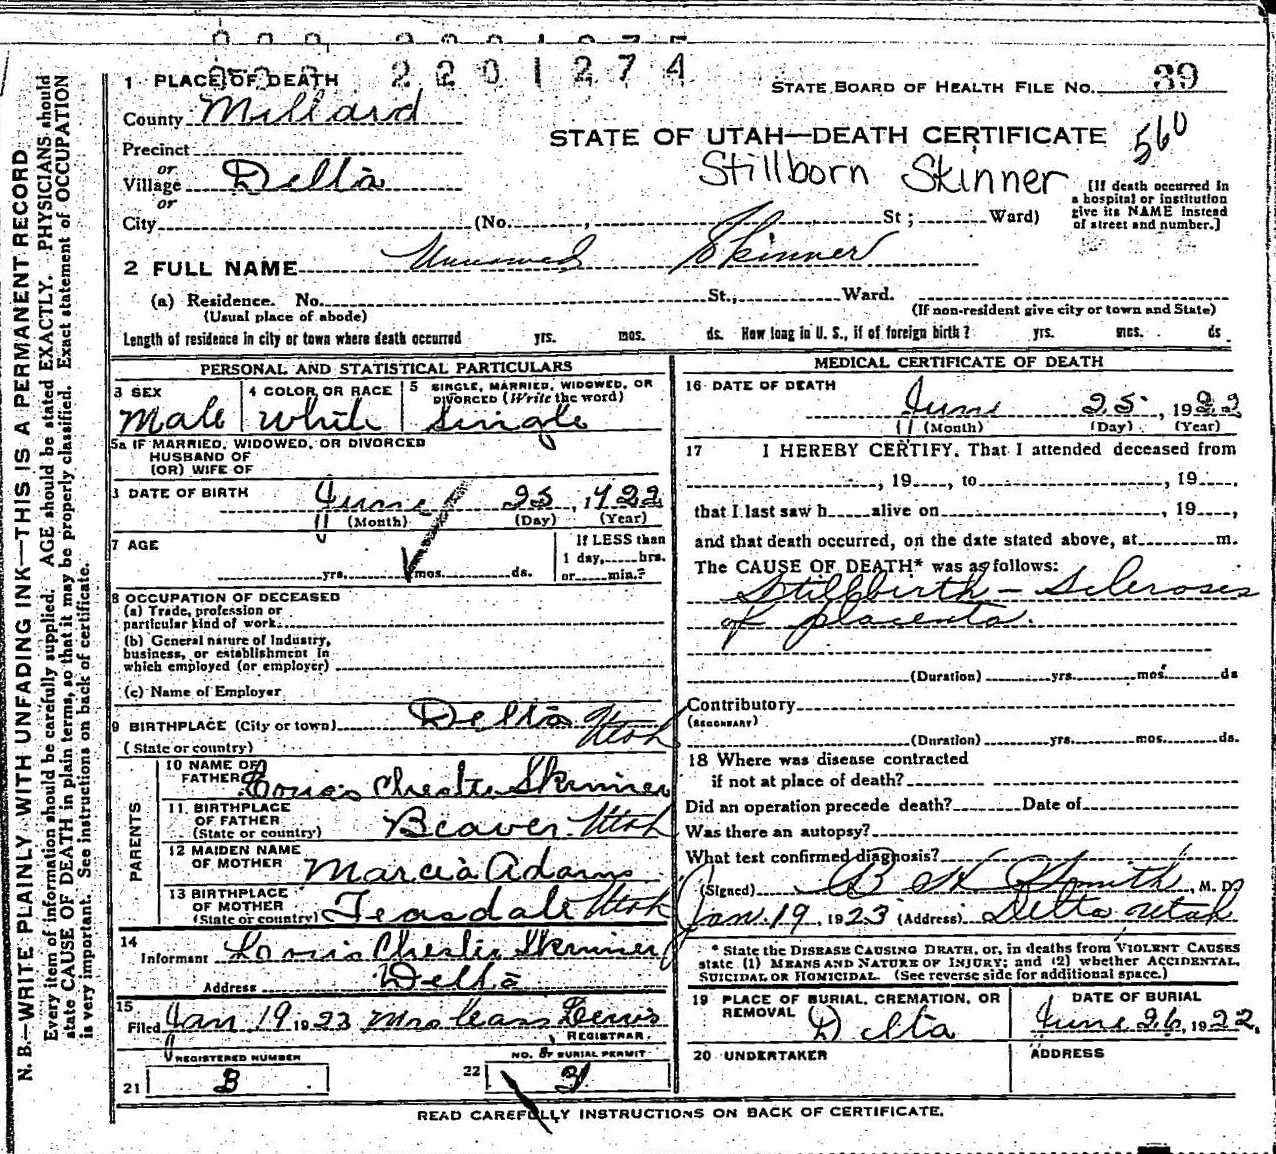 2201274
1 PLACE OF DEATH
STATE BOARD OF HEALTH FILE NO. 39
County Millard
STATE OF UTAH—DEATH CERTIFICATE 560
Precinct
or
Village Delta
Stillborn Skinner
or
City (No. , St ; Ward)
[If death occurred in
a hospital or institution
give its NAME instead
of street and number.]
2 FULL NAME Unnamed Skinner
(a) Residence. No. St., Ward.
(Usual place of abode) (If non-resident give city or town and State)
Length of residence in city or town where death occurred yrs. mos. ds. How long in U. S., if of foreign birth? yrs. mos. ds.
PERSONAL AND STATISTICAL PARTICULARS
3 SEX Male
4 COLOR OR RACE White
5 SINGLE, MARRIED, WIDOWED, OR
DIVORCED (Write the word)
Single
5a IF MARRIED, WIDOWED, OR DIVORCED
HUSBAND OF
(OR) WIFE OF
DATE OF BIRTH June 25, 1922
(Month) (Day) (Year)
7 AGE
yrs. mos. ds.
If LESS than
1 day, hrs.
or min.?
8 OCCUPATION OF DECEASED
(a) Trade, profession or
particular kind of work
(b) General nature of industry,
business, or establishment in
which employed (or employer)
(c) Name of Employer
9 BIRTHPLACE (City or town) Delta
(State or country) Utah
PARENTS
10 NAME OF
FATHER Louis Chester Skinner
11 BIRTHPLACE
OF FATHER
(State or country) Beaver Utah
12 MAIDEN NAME
OF MOTHER Marcia Adams
13 BIRTHPLACE
OF MOTHER
(State or country) Teasdale Utah
14
Informant Louis Chester Skinner
Address Delta
15
Filed Jan 19 1923 Mrs
REGISTRAR.
REGISTERED NUMBER
21 B
NO. OF BURIAL PERMIT
22
MEDICAL CERTIFICATE OF DEATH
16 DATE OF DEATH
June 25, 1922
(Month) (Day) (Year)
17 I HEREBY CERTIFY, That I attended deceased from
, 19 , to , 19
that I last saw h alive on , 19 ,
and that death occurred, on the date stated above, at m.
The CAUSE OF DEATH* was as follows:
Stillbirth - Scleroses
of placenta.
(Duration) yrs. mos. ds
Contributory
(SECONDARY)
(Duration) yrs. mos. ds.
18 Where was disease contracted
if not at place of death?
Did an operation precede death? Date of
Was there an autopsy?
What test confirmed diagnosis?
(Signed) Smith, M. D.
Jan. 19, 1923 (Address) Delta Utah
* State the DISEASE CAUSING DEATH, or, in deaths from VIOLENT CAUSES
state (1) MEANS AND NATURE OF INJURY; and (2) whether ACCIDENTAL,
SUICIDAL OR HOMICIDAL. (See reverse side for additional space.)
19 PLACE OF BURIAL, CREMATION, OR
REMOVAL Delta
DATE OF BURIAL
June 26, 1922.
20 UNDERTAKER
ADDRESS
READ CAREFULLY INSTRUCTIONS ON BACK OF CERTIFICATE.
N. B.—WRITE PLAINLY WITH UNFADING INK—THIS IS A PERMANENT RECORD
Every item of information should be carefully supplied. AGE should be stated EXACTLY. PHYSICIANS should
state CAUSE OF DEATH in plain terms, so that it may be properly classified. Exact statement of OCCUPATION
is very important. See instructions on back of certificate.